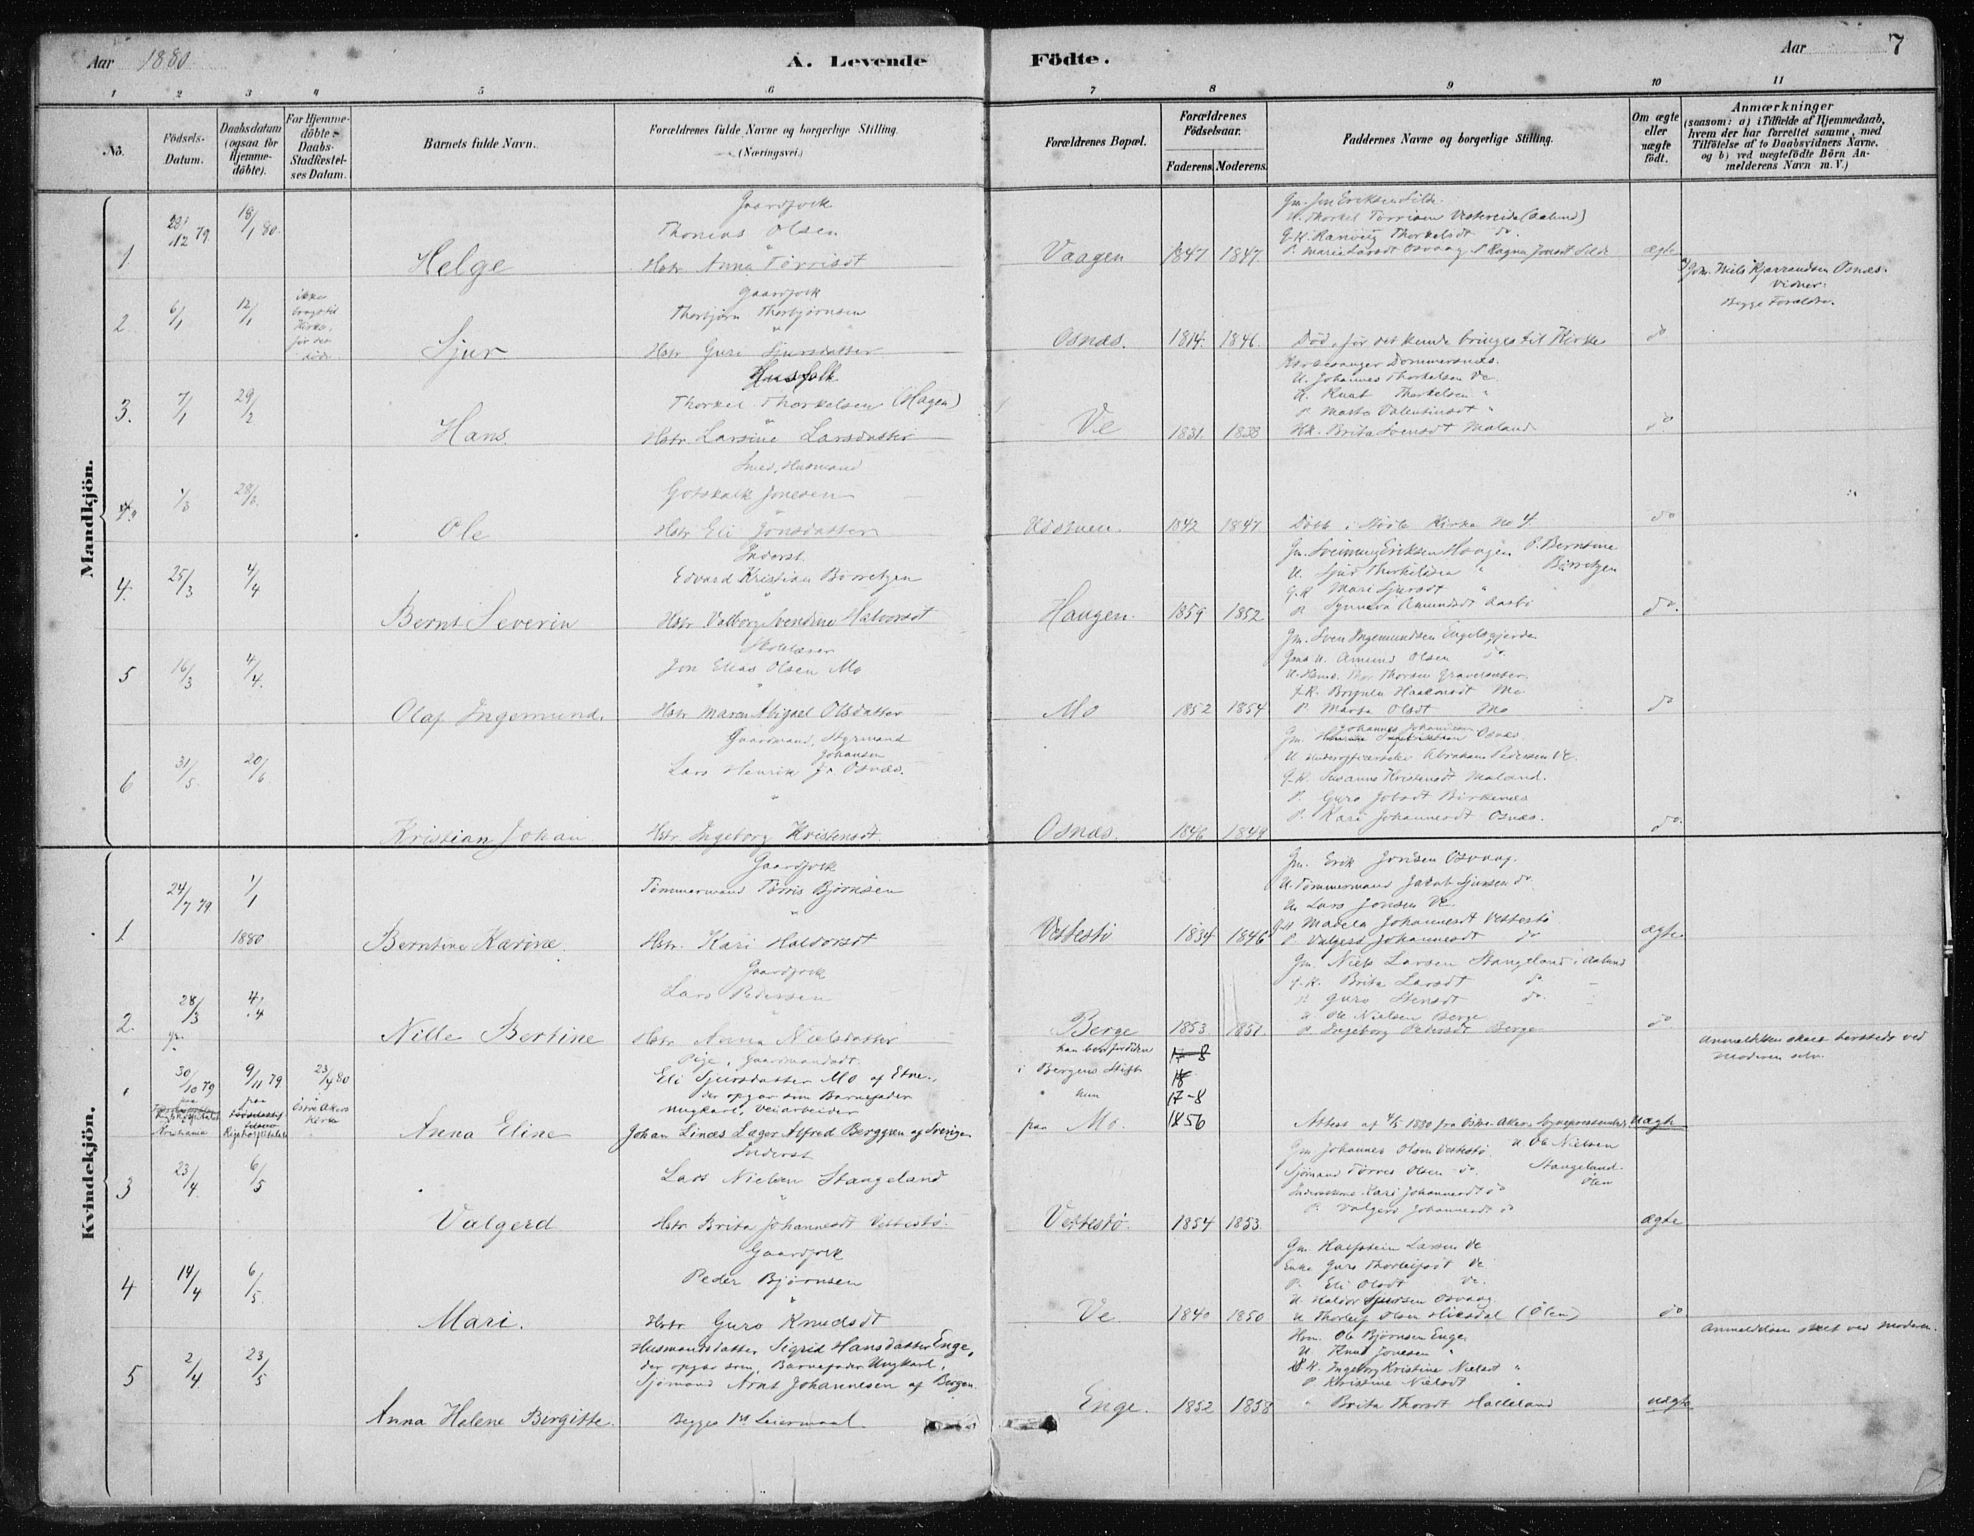 Aar 1880
A. Levende Födte.
Aar 7
1 2 3 4 5 6 7 8 9 10 11
No.
Födsels-Datum.
Daabsdatum (ogsaa for Hjemmedöbte).
For Hjemmedöbte: Daabs-Stadfestelses Datum.
Barnets fulde Navn.
Forældrenes fulde Navne og borgerlige Stilling.
(Næringsvei.)
Forældrenes Bopæl.
Forældrenes Födselsaar.
Faderens. Moderens.
Faddernes Navne og borgerlige Stilling.
Om ægte eller uægte født.
Anmærkninger
(saasom: a) i Tilfælde af Hjemmedaab, hvem der har forrettet samme, med Tilföielse af to Daabsvidners Navne, og b) ved uægtefödte Börn Anmelderens Navn m. V.)
Mandkjön.
1 28/12 79. 18/1 80. Helge
Gaardfolk
Thomas Olsen
Hstr. Anna Tørrisdt
Vaagen 1847 1847
Gm. Jon Eriksen Silde
U. Thorkel Tørrisen Vestreide (Aalund)
ægte
2 6/1 12/1
ikke bragt til Kirke, før det døde
Sjur
Gaardfolk
Thorbjørn Thorbjørnsen
Hstr. Guri Sjursdatter
Osnæs. 1814. 1846.
Død, før det kunde bringes til Kirke
do
Gm. Niels Kjærrandsen Osnæs.
Vidner:
Begge Forældre.
3. 7/1 29/2 Hans
Husfolk
Thorkel Thorkelsen (Hagen)
Hstr. Larsine Larsdatter
Ve 1831. 1838
Kirkesanger Dommersnes.
U. Johannes Thorkelsen Ve
U. Knut Thorkelsen "
P. Marta Valentinsdt "
Hk. Brita Svensdt Maland
do
4. 1/3 28/3. Ole
Smed, Husmand
Gotskalk Jonesen
Hstr Eli Jonsdatter
1842 1847.
Døbt i Kirke No 4.
do
4. 25/3 4/4 Bernt Severin
Inderst.
Edvard Kristian Børretzen
Hstr. Valborg Svendine Halvorsdt
Haugen. 1859 1852
Gm. Sveinung Eriksen Haugen P. Berntine Børretzen
U. Sjur Thorkelsen "
G.K. Mari Sjursdt "
P. Synneva Amundsdt Aasbø
do.
5 16/3 4/4. Olaf Ingemund.
Skolelærer
Jon Elias Olsen Mo
Hstr Maren Abigael Olsdatter
Mo 1852 1854
Gm. Sven Ingemundsen Engelsgjerde
U. Amund Olsen do.
G.K. Borgnla Haakonsdt Mo
P. Marta Olsdt Mo
do
6 31/5. 20/6 Kristian Johan
Gaardmand, Styrmand
Lars Henrik Johansen Osnæs.
Hstr. Ingeborg Kristensdt.
Osnæs. 1846 1849
Gm. Johannes Johannesen Osnæs.
U. Abraham Pedersen Ve.
G.K. Susanne Kristensdt Maland.
P. Guro Jobsdt Birkenæs
P. Kari Johannesdt Osnæs.
do.
Kvindekjön.
1 24/7 79 1/1 1880 Berntine Karine.
Gaardfolk
Tømmermand Tørris Bjørnsen
Hstr. Kari Haldorsdt
Vestestø 1834 1846
Gm. Erik Jonsen Osvaag.
U. Tømmermand Jakob Sjursen do
U. Lars Jonsen Ve
G.K. Madela Johannesdt Vettestø
P. Valgerd Johannesdt do
ægte
2. 28/3 4/4 Nille Bertine
Gaardfolk
Lars Pedersen
Hstr. Anna Nielsdatter
Berge 1853 1851
Gm. Niels Larsen Stangeland i Aalund
G.K. Brita Larsdt do
P. Guro Stensdt do.
U. Ole Nielsen Berge
P. Ingeborg Pedersdt Berge
do
30/10 79 9/11 79 23/4 80
Rigshospitalet Kristiania
Østre Akers Kirke
Anna Eline
Pige, Gaardmandsdt.
Eli Sjursdatter Mo af Etne.,
der opgav som Barnefader
Ungkarl, Veiarbeider
Johan Linæs Lager Alfred Berggren af Sverige
han
i Bergens Stift
hun
paa Mo.
17-8
1856
Attest af 4/5 1880 fra Østre Aker
uægte
Anmeldelsen skeet hersteds ved Moderen selv.
3 23/4. 6/5 Valgerd
Inderst
Lars Nielsen Stangeland
Hstr Brita Johannesdt Vettestø.
Vettestø. 1854 1853
Gm. Johannes Olsen Vettestø. U. Ole Nielsen Stangeland Ølen
Sjømand Tørres Olsen do.
Kari Johannesdt do
P. Valgerd Johannesdt do
ægte
4 14/4 6/5. Mari.
Gaardfolk
Peder Bjørnsen
Hstr Guro Knudsdt
Ve 1840 1850
Gm Halfstein Larsen Ve
Enke Guro Thorleifsdt Ve.
P. Eli Olsdt Ve.
U Haldor Sjursen Osvaag
U Thorleif Olsen (Ølen)
do
5 2/4. 23/5 Anna Helene Birgitte.
Husmandsdatter Sigrid Hansdatter Enge,
der opgav som Barnefader Ungkarl,
Sjømand Arnt Johannesen af Bergen.
Begges 1st Leiermaal
Enge. 1852 1858
Hm. Ole Bjørnsen Enge
U. Knud Jonesen "
G.K. Ingeborg Kristine Nielsdt "
P. Kristine Nielsdt "
" Brita Thorsdt Halleland
uægte
Anmeldelsen skeet ved Moderen.